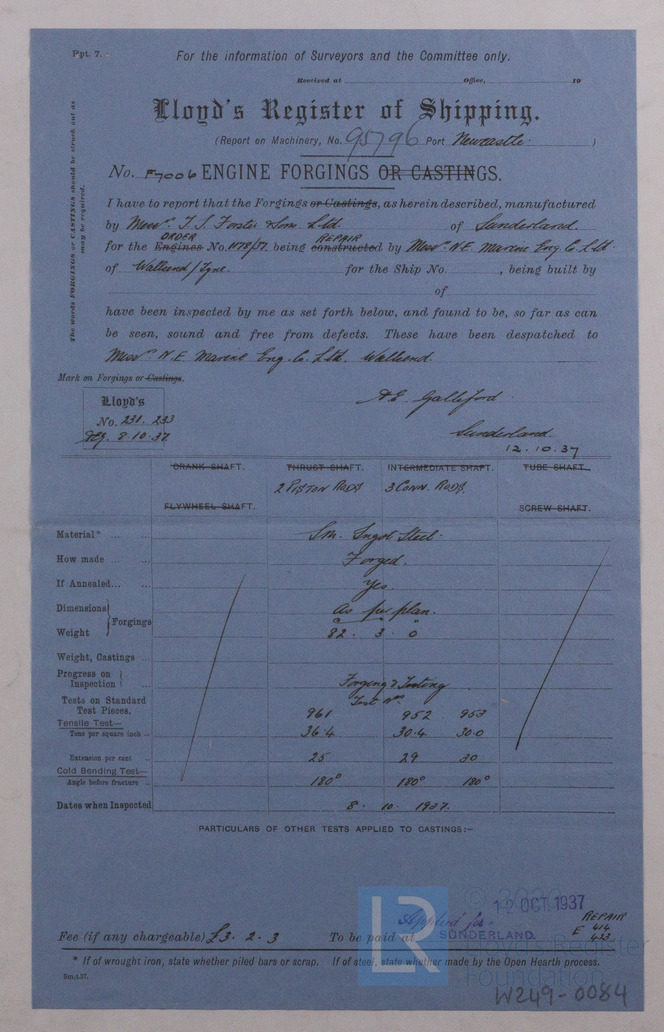 Rpt. 7.
For the information of Surveyors and the Committee only.
Received at Office, 19
Lloyd's Register of Shipping.
(Report on Machinery, No. 95796 Port Newcastle )
No. F7006 ENGINE FORGINGS OR CASTINGS.
The words FORGINGS or CASTINGS should be struck out as may be required.
I have to report that the Forgings or Castings, as herein described, manufactured
by Messrs. T. S. Forster & Son Ltd. of Sunderland.
ORDER REPAIR
for the Engines No. 1178/37. being constructed by Messrs N.E. Marine Eng. Co. Ltd.
of Wallsend/Tyne. for the Ship No. , being built by
of
have been inspected by me as set forth below, and found to be, so far as can
be seen, sound and free from defects. These have been despatched to
Messrs N.E. Marine Eng. Co. Ltd. Wallsend.
Mark on Forgings or Castings.
Lloyd's
No. 231. 233
8.10.37
A.E. Galliford
Sunderland.
12.10.37
CRANK SHAFT. THRUST SHAFT. INTERMEDIATE SHAFT. TUBE SHAFT.
2 PISTON RODS 3 CONN. RODS.
FLYWHEEL SHAFT. SCREW SHAFT.
Material* ... Sm. Ingot Steel.
How made ... Forged.
If Annealed... Yes.
Dimensions } Forgings As per plan.
Weight 82. 3. 0
Weight, Castings ...
Progress on Inspection } Forging & Testing
Tests on Standard Test Pieces. Test Nos.
961 952 953
Tensile Test—
Tons per square inch ... 36.4 30.4 30.0
Extension per cent 25 29 30
Cold Bending Test—
Angle before fracture ... 180° 180° 180°
Dates when Inspected 8. 10. 1937.
PARTICULARS OF OTHER TESTS APPLIED TO CASTINGS:—
© 2020
12 OCT 1937
Applied for
REPAIR
E 414
423
Fee (if any chargeable) £3. 2. 3 To be paid at SUNDERLAND.
LR
Lloyd's Register
Foundation
* If of wrought iron, state whether piled bars or scrap. If of steel, state whether made by the Open Hearth process.
5m.4.37.
W249-0084